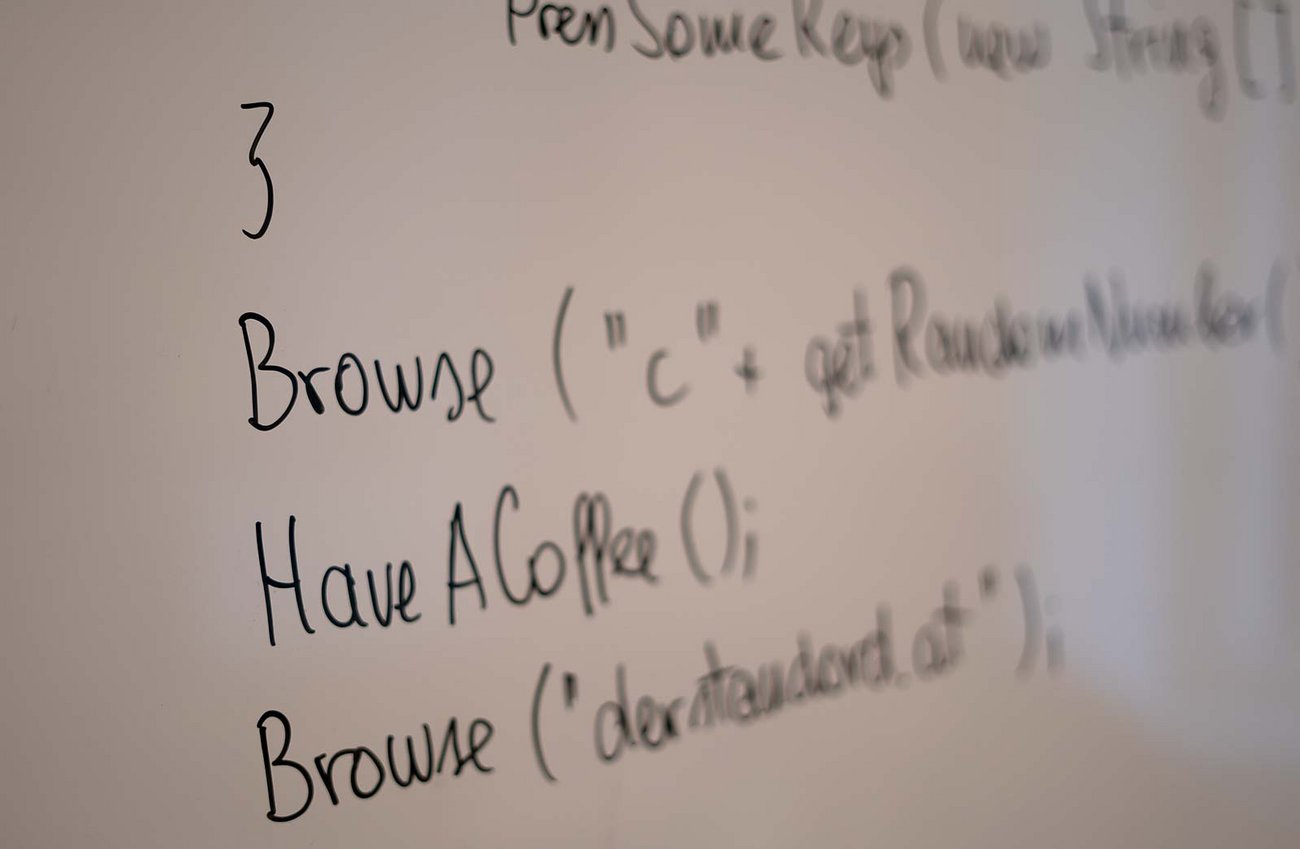 PressSomeKeys(new String[]
}
Browse ("c" + getRandomNumber(
HaveACoffee ();
Browse ("derstandard.at");